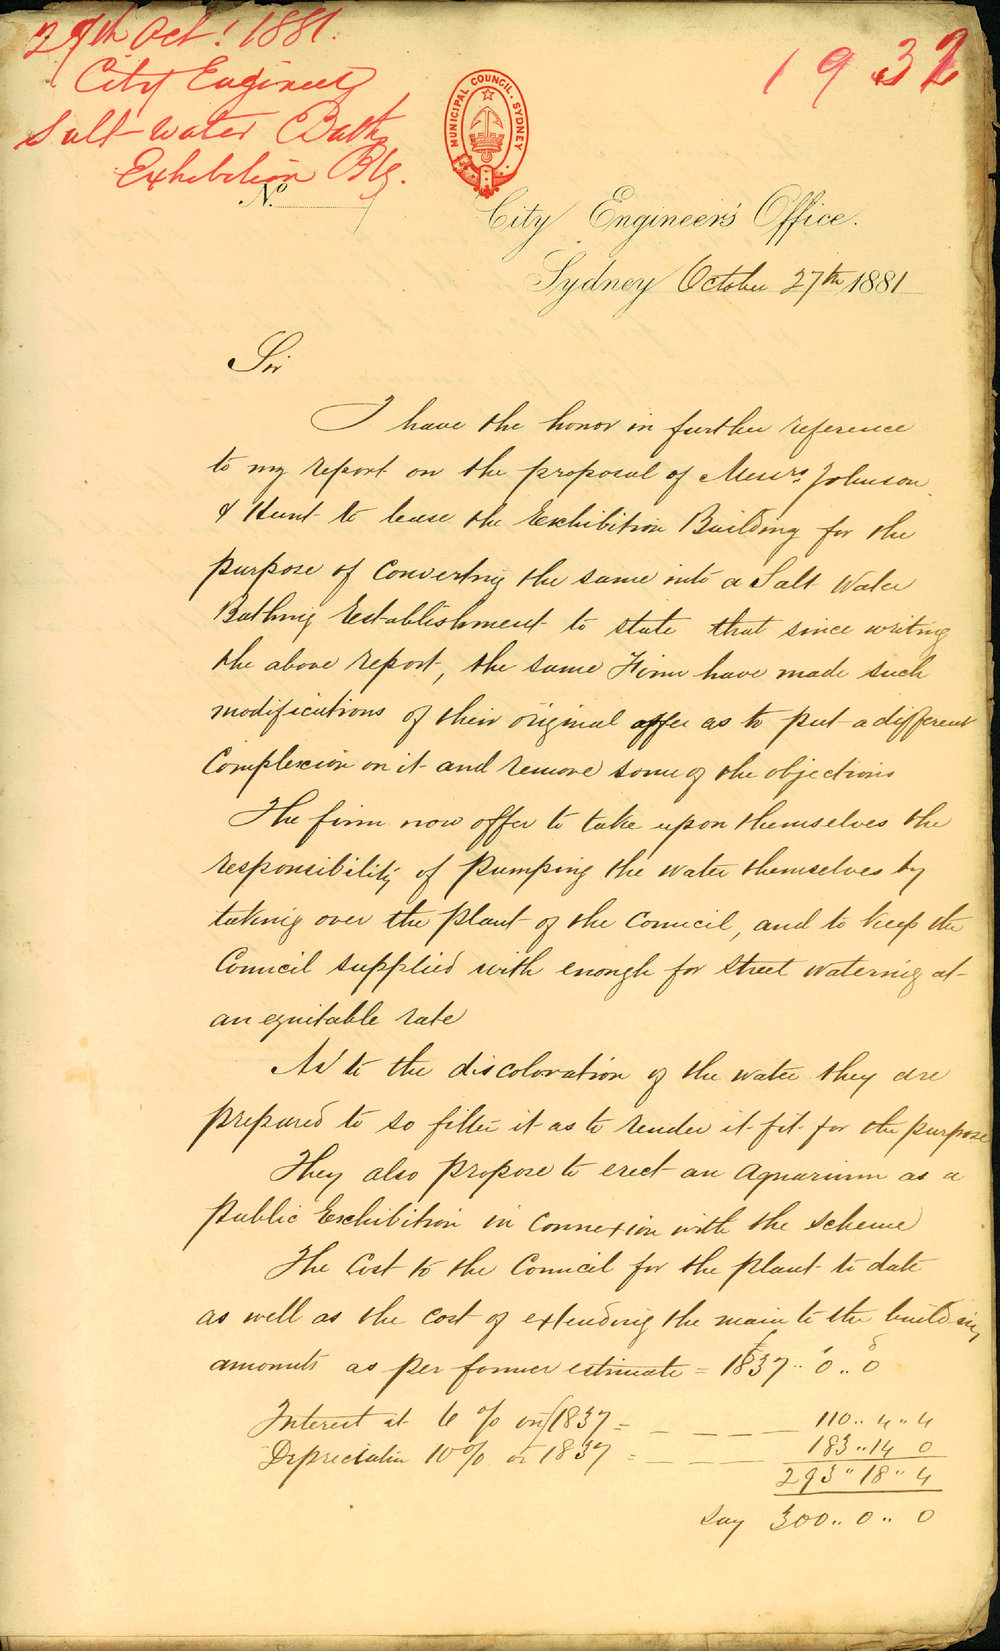 29th Oct. 1881.
City Engineer
Salt water Baths
Exhibition Blg.
1932
MUNICIPAL COUNCIL. SYDNEY
No.
City Engineer's Office.
Sydney October 27th 1881
Sir
I have the honor in further reference
to my report on the proposal of Messrs. Johnson
& Hunt to lease the Exhibition Building for the
purpose of converting the same into a Salt Water
Bathing Establishment to state that since writing
the above report, the same Firm have made such
modifications of their original offer as to put a different
Complexion on it and remove some of the objections
The firm now offer to take upon themselves the
responsibility of pumping the water themselves by
taking over the plant of the Council, and to keep the
Council supplied with enough for street watering at
an equitable rate
As to the discoloration of the water they are
prepared to so filter it as to render it fit for the purpose
They also propose to erect an Aquarium as a
public Exhibition in connexion with the scheme
The Cost to the Council for the plant to date
as well as the cost of extending the main to the building
amounts as per former estimate = £1837.. 0.. 0
Interest at 6 % on £1837 = 110.. 4.. 4
Depreciation 10% on 1837 = 183..14 0
293" 18" 4
say 300.. 0.. 0